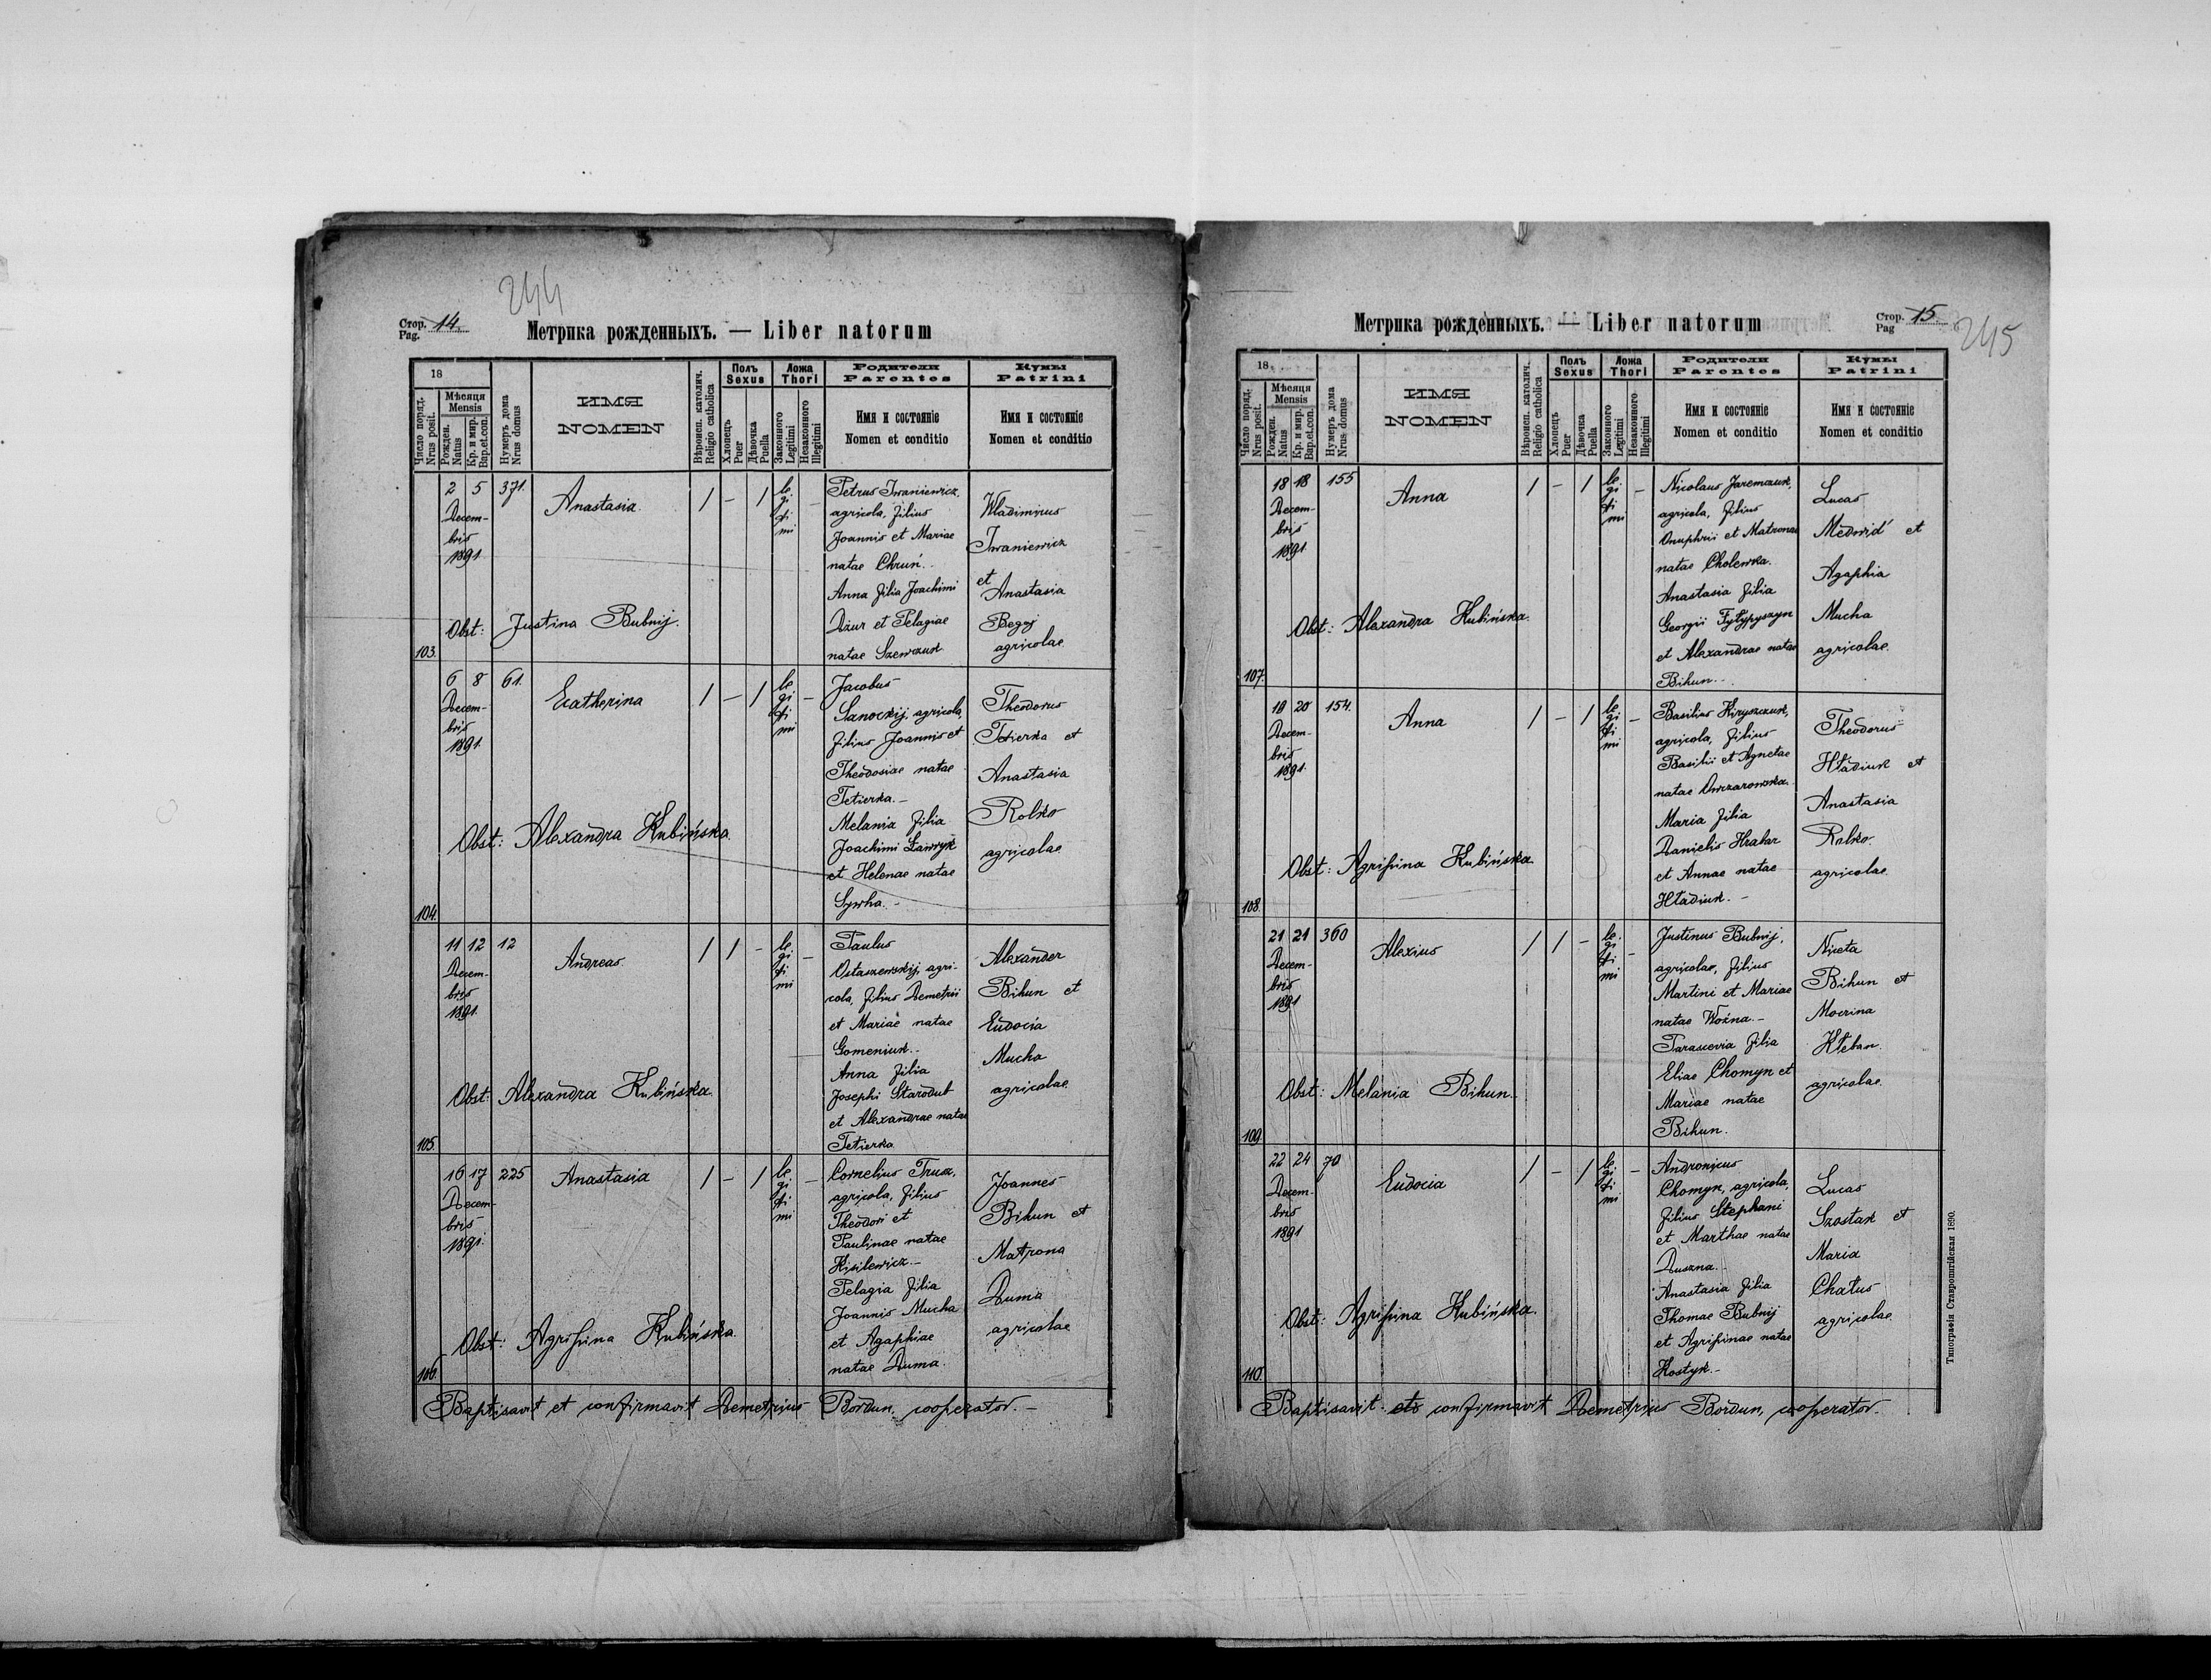 244
Стор. Pag. 14.
Метрика рожденныхъ. — Liber natorum
18
Число поряд. Nrus posit.
Мѣсяця Mensis
Рожден. Natus
Кр. и мир. Bap. et. con.
Нумеръ дома Nrus domus
ИМЯ
NOMEN
Вѣроисп. католич. Religio catholica
Полъ Sexus
Хлопецъ Puer
Дѣвочка Puella
Ложа Thori
Законного Legitimi
Незаконного Illegitimi
Родители
Parentes
Имя и состоянiе
Nomen et conditio
Кумы
Patrini
Имя и состоянiе
Nomen et conditio
103.
2 5 371.
Decem-
bris
1891.
Anastasia
/ – / legitimi –
Petrus Iwaniewicz,
agricola, filius
Joannis et Mariae
natae Chruń.
Anna filia Joachimi
Dżur et Pelagiae
natae Szewczuk
Wladimirus
Iwaniewicz
et
Anastasia
Begej
agricolae
Obst: Justina Bubnij.
104.
6 8 61.
Decem-
bris
1891.
Ecatherina
/ – / legitimi –
Jacobus
Sanockij, agricola,
filius Joannis et
Theodosiae natae
Tetierka.–
Melania filia
Joachimi Ławryk
et Helenae natae
Syrha.–
Theodorus
Tetierka et
Anastasia
Rolko
agricolae
Obst: Alexandra Kubińska.
105.
11 12 12
Decem-
bris
1891.
Andreas
/ / – legitimi –
Paulus
Ostaszewskij, agri-
cola, filius Demetrii
et Mariae natae
Gomeniuk.–
Anna filia
Josephi Starodub
et Alexandrae natae
Tetierka
Alexander
Bihun et
Eudocia
Mucha
agricolae
Obst: Alexandra Kubińska.
106.
16 17 225
Decem-
bris
1891.
Anastasia
/ – / legitimi –
Cornelius Trusz,
agricola, filius
Theodori et
Paulinae natae
Kisilewicz.–
Pelagia filia
Joannis Mucha
et Agaphiae
natae Duma.
Joannes
Bihun et
Matrona
Duma
agricolae
Obst: Agripina Kubińska.
Baptisavit et confirmavit Demetrius Bordun, cooperator.–
Метрика рожденныхъ. — Liber natorum
Стор. Pag 15.
245
18
Число поряд. Nrus posit.
Мѣсяця Mensis
Рожден. Natus
Кр. и мир. Bap. et. con.
Нумеръ дома Nrus domus
ИМЯ
NOMEN
Вѣроисп. католич. Religio catholica
Полъ Sexus
Хлопецъ Puer
Дѣвочка Puella
Ложа Thori
Законного Legitimi
Незаконного Illegitimi
Родители
Parentes
Имя и состоянiе
Nomen et conditio
Кумы
Patrini
Имя и состоянiе
Nomen et conditio
107.
18 18 155
Decem-
bris
1891
Anna
/ – / legitimi –
Nicolaus Jaremczuk,
agricola, filius
Onuphrii et Matronae
natae Cholewka.
Anastasia filia
Georgii Pyłypyszyn
et Alexandrae natae
Bihun.–
Lucas
Medwid' et
Agaphia
Mucha
agricolae
Obst: Alexandra Kubińska.
108.
19 20 154.
Decem-
bris
1891.
Anna
/ – / legitimi –
Basilius Kiryszczuk,
agricola, filius
Basilii et Agnetae
natae Owczarowska.
Maria filia
Danielis Hrabar
et Annae natae
Hładiuk.–
Theodorus
Hładiuk et
Anastasia
Rolko
agricolae.
Obst: Agripina Kubińska.
109.
21 21 360
Decem-
bris
1891
Alexius
/ / – legitimi –
Justinus Bubnij,
agricolae, filius
Martini et Mariae
natae Woźna.–
Parascevia filia
Eliae Chomyn et
Mariae natae
Bihun.
Niceta
Bihun et
Mocrina
Kłeban.
agricolae
Obst: Melania Bihun.
110.
22 24 70
Decem-
bris
1891
Eudocia
/ – / legitimi –
Andronicus
Chomyn, agricola,
filius Stephani
et Marthae natae
Duszna.–
Anastasia filia
Thomae Bubnij
et Agripinae natae
Kostyk.–
Lucas
Szostak et
Maria
Chatus
agricolae
Obst: Agripina Kubińska.
Baptisavit et confirmavit Demetrius Bordun, cooperator.–
Типографія Ставропигійская 1890.